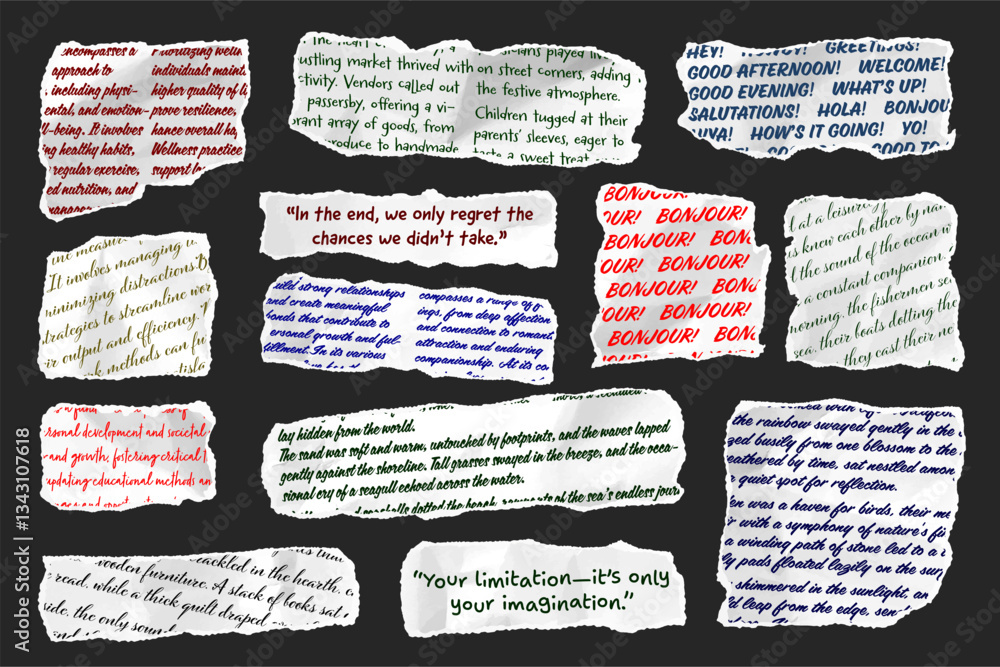 encompasses a
approach to
, including physi-
ental, and emotion-
l-being. It involves
ng healthy habits,
regular exercise,
ed nutrition, and
Prioritizing welln
individuals maint
higher quality of li
prove resilience,
hance overall ha
Wellness practice
support
ustling market thrived with
ctivity. Vendors called out
passersby, offering a vi-
rant array of goods, from
roduce to handmade
sicians played live
on street corners, adding
the festive atmosphere.
Children tugged at their
parents' sleeves, eager to
taste a sweet treat
HEY! HOWDY! GREETINGS!
GOOD AFTERNOON! WELCOME!
GOOD EVENING! WHAT'S UP!
SALUTATIONS! HOLA! BONJOU
VIVA! HOW'S IT GOING! YO!
GOOD TO
"In the end, we only regret the
chances we didn't take."
BONJOUR!
OUR! BONJOUR!
BONJOUR! BON
OUR! BONJOUR!
BONJOUR! BON
OUR! BONJOUR!
BONJOUR! BON
l at a leisurely
s knew each other by nam
the sound of the ocean w
a constant companion.
morning, the fishermen se
sea, their boats dotting the
they cast their ne
ine measur
It involves managing ti
minimizing distractions. By
trategies to streamline wor
ir output and efficiency. T
k methods can fu
uild strong relationships
and create meaningful
bonds that contribute to
ersonal growth and ful-
fillment. In its various
compasses a range of f
ings, from deep affection
and connection to romant
attraction and enduring
companionship. At its co
rsonal development and societal
and growth, fostering critical t
updating educational methods an
lay hidden from the world.
The sand was soft and warm, untouched by footprints, and the waves lapped
gently against the shoreline. Tall grasses swayed in the breeze, and the occa-
sional cry of a seagull echoed across the water.
seashells dotted the beach, remnants of the sea's endless journ
the rainbow swayed gently in the
zed busily from one blossom to the
eathered by time, sat nestled amon
r quiet spot for reflection.
en was a haven for birds, their me
r with a symphony of nature's fi
a winding path of stone led to a
ly pads floated lazily on the sur
shimmered in the sunlight, an
d leap from the edge, sen
crackled in the hearth,
wooden furniture. A stack of books sat
read, while a thick quilt draped
ide, the only sound
"Your limitation—it's only
your imagination."
Adobe Stock | #1343107618